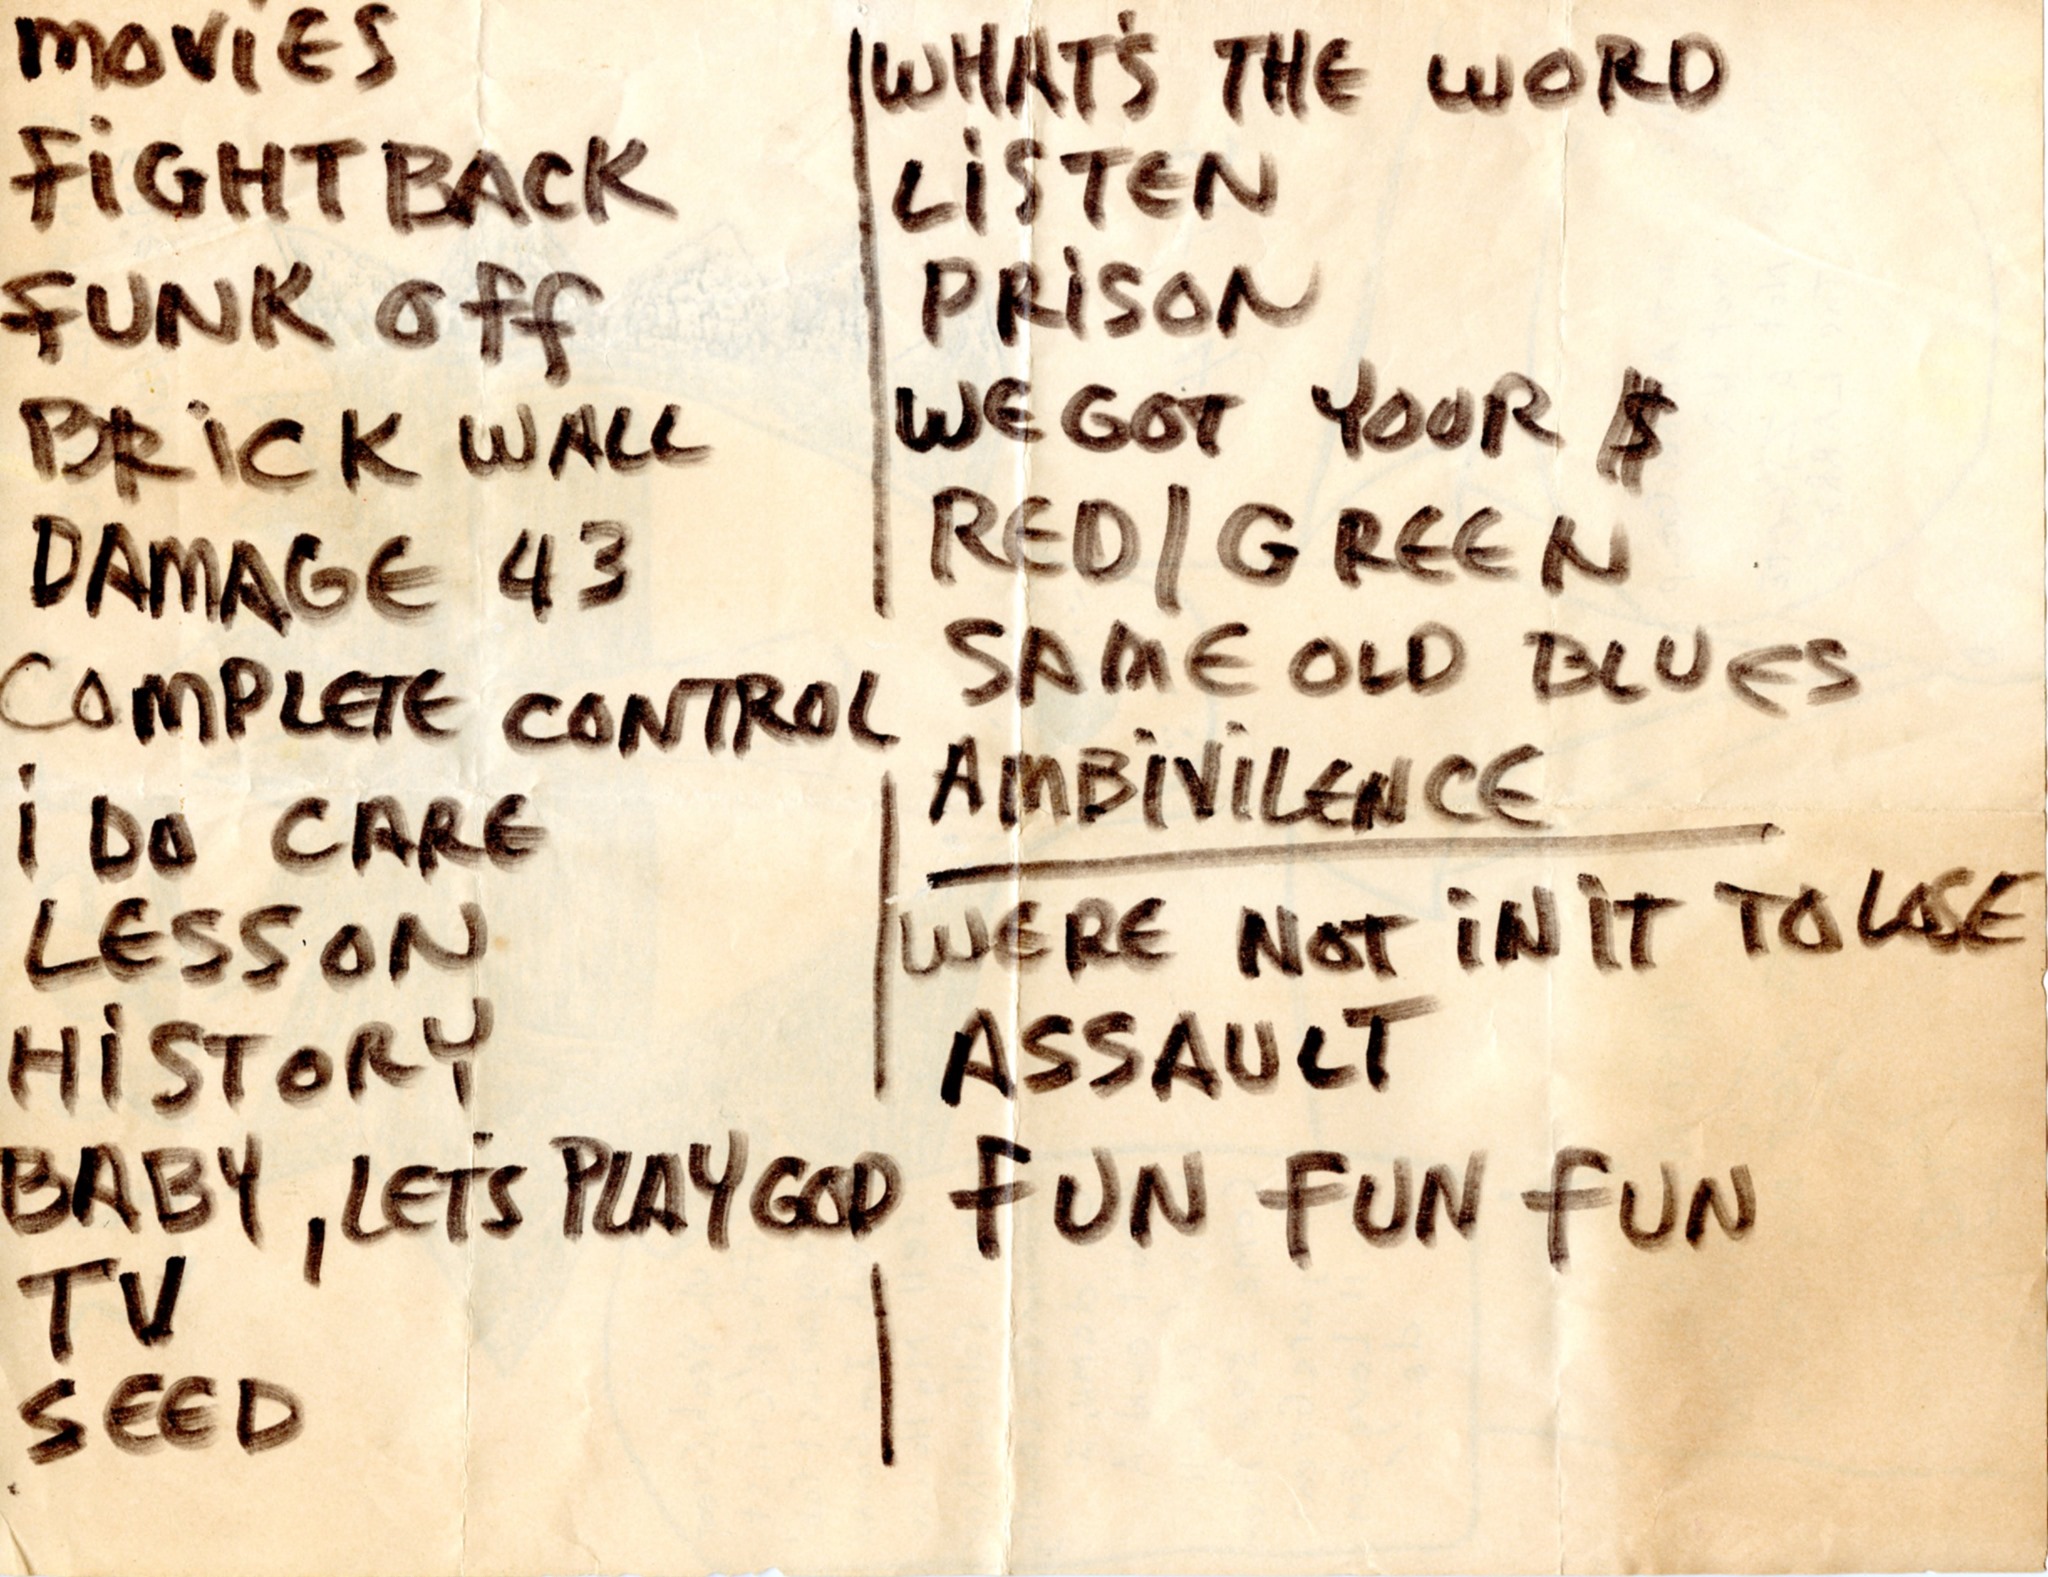 MOVIES
FIGHT BACK
FUNK OFF
BRICK WALL
DAMAGE 43
COMPLETE CONTROL
I DO CARE
LESSON
HISTORY
BABY, LET'S PLAY GOD
TV
SEED
WHAT'S THE WORD
LISTEN
PRISON
WE GOT YOUR $
RED/GREEN
SAME OLD BLUES
AMBIVILENCE
WERE NOT IN IT TO LOSE
ASSAULT
FUN FUN FUN